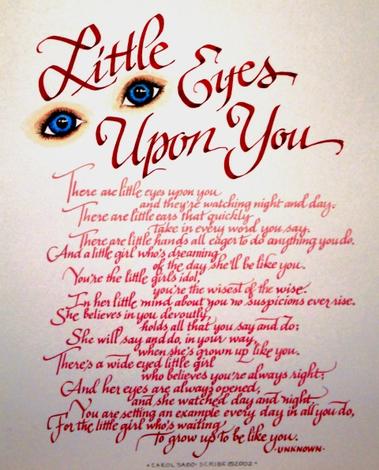 Little Eyes
Upon You
There are little eyes upon you
and they're watching night and day.
There are little ears that quickly
take in every word you say.
There are little hands all eager to do anything you do.
And a little girl who's dreaming
of the day she'll be like you.
You're the little girl's idol,
you're the wisest of the wise.
In her little mind about you no suspicions ever rise.
She believes in you devoutly,
holds all that you say and do;
She will say and do, in your way
when she's grown up like you.
There's a wide eyed little girl
who believes you're always right;
And her eyes are always opened,
and she watched day and night.
You are setting an example every day in all you do,
For the little girl who's waiting
To grow up to be like you.
-UNKNOWN-
•CAROL SABO-SCRIBE ©2002•